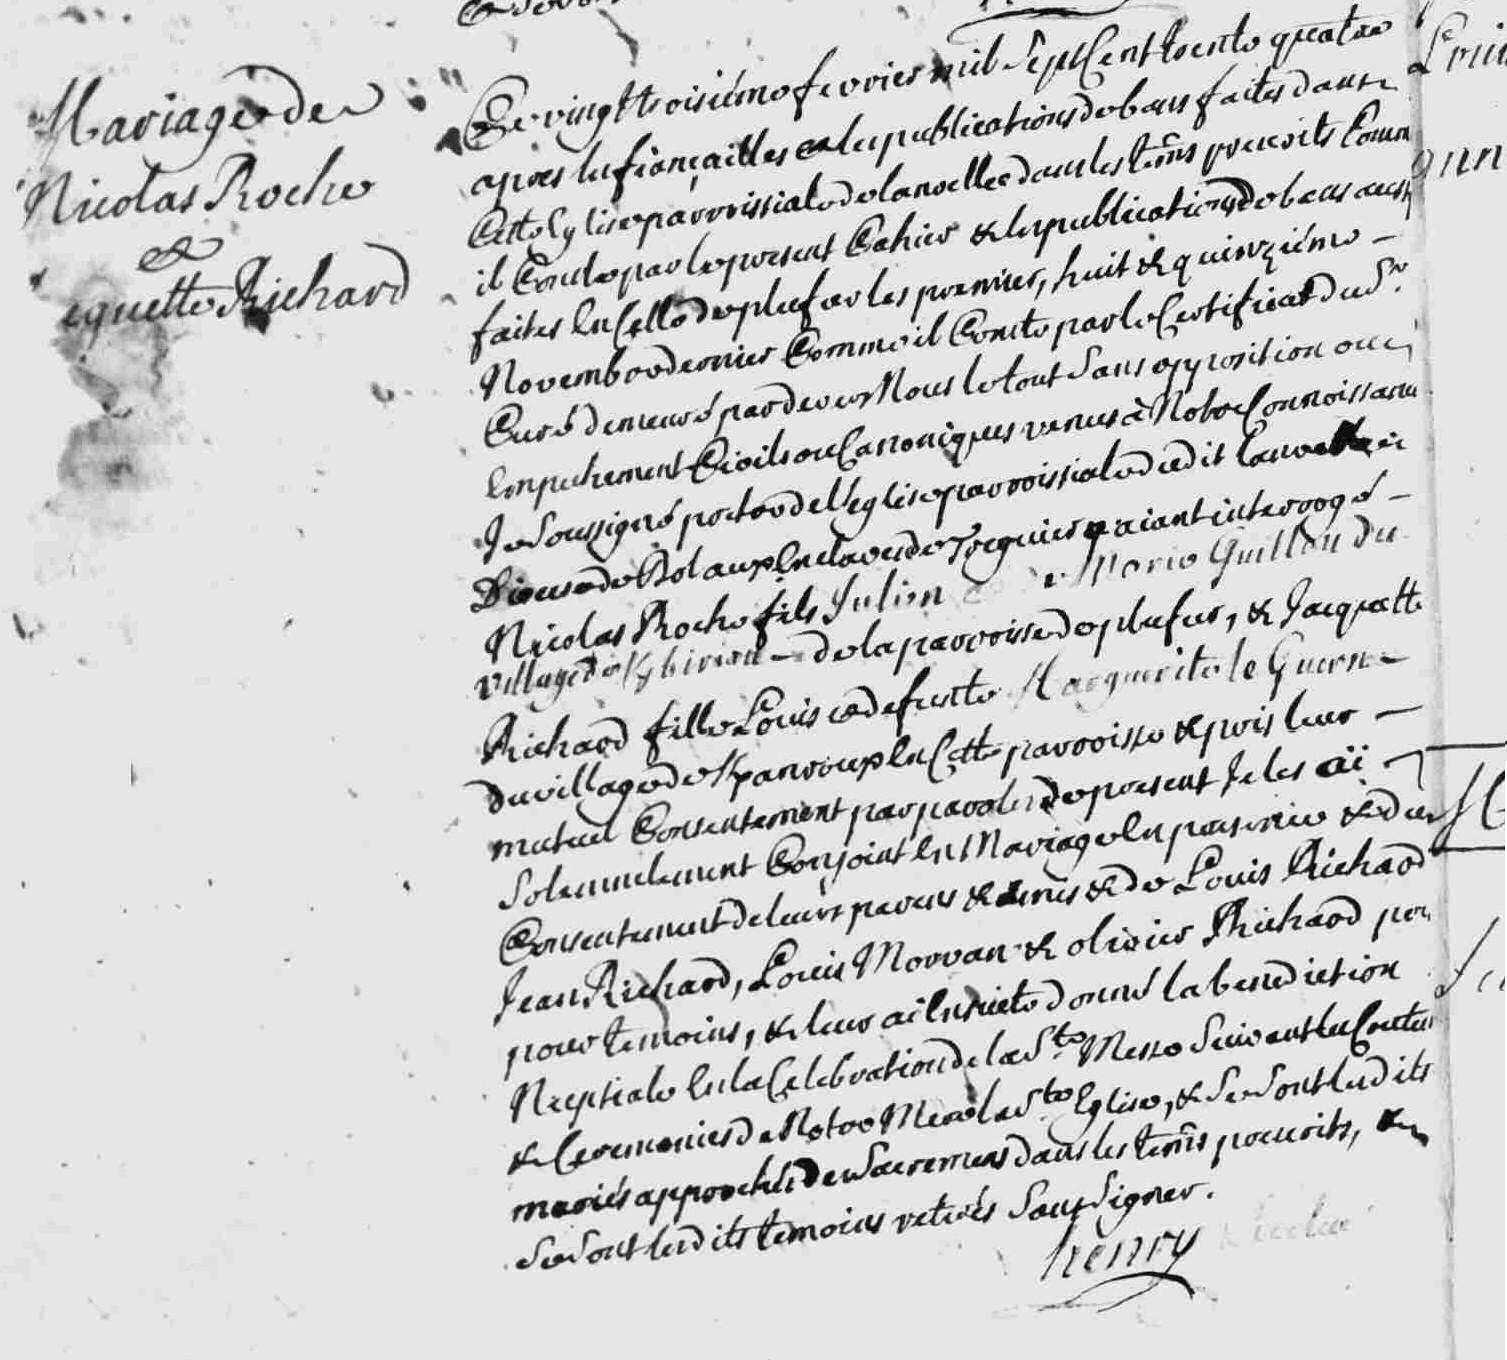 Mariage de
Nicolas Roche
&
equette Richard
Ce vingt troisiéme fevrier mil sept Cent trente quatre
apres les fiançailles & les publications de bans faites dans
Cette Eglise parroissiale de lanvellec dans les tems prescrits Comm
il Conste par le present Cahier & les publications de bans aussy
faites en Celle de plufur les premier, huit & quinziéme
Novembre dernier Comme il Conste par le Certificat du Sr.
Curé demeuré par devers Nous le tout Sans opposition ou
Empechement Civils ou Canoniques venus à Notre Connoissance
Je Soussigné prétre de l'eglise parroissiale dudit lanvellec
Diocese de Dol aux Enclaves de Treguier aiant interrogé
Nicolas Roche fils Julien Marie Guillou du
village de de la parroisse de plufur, & Jacquette
Richard fille Louis & defunte Marguerite le Guern
du village de En Cette parroisse & pris leur
mutuel Consentement par paroles de present Je les ai
Solennelement Conjoint en Mariage En presence & du
Consentement de leurs parens & amis & de Louis Richard
Jean Richard, Louis Morvan & olivier Richard
pour temoins, & leur ai Ensuite donné la benediction
Nuptiale En la Celebration de la Ste. Messe Suivant les Coutumes
& Ceremonies de Notre Mere la Ste Eglise, & Se Sont lesdits
mariés approchés des Sacremens dans les tems prescrits, &
Se Sont lesdits temoins retirés Sans Signer.
henry